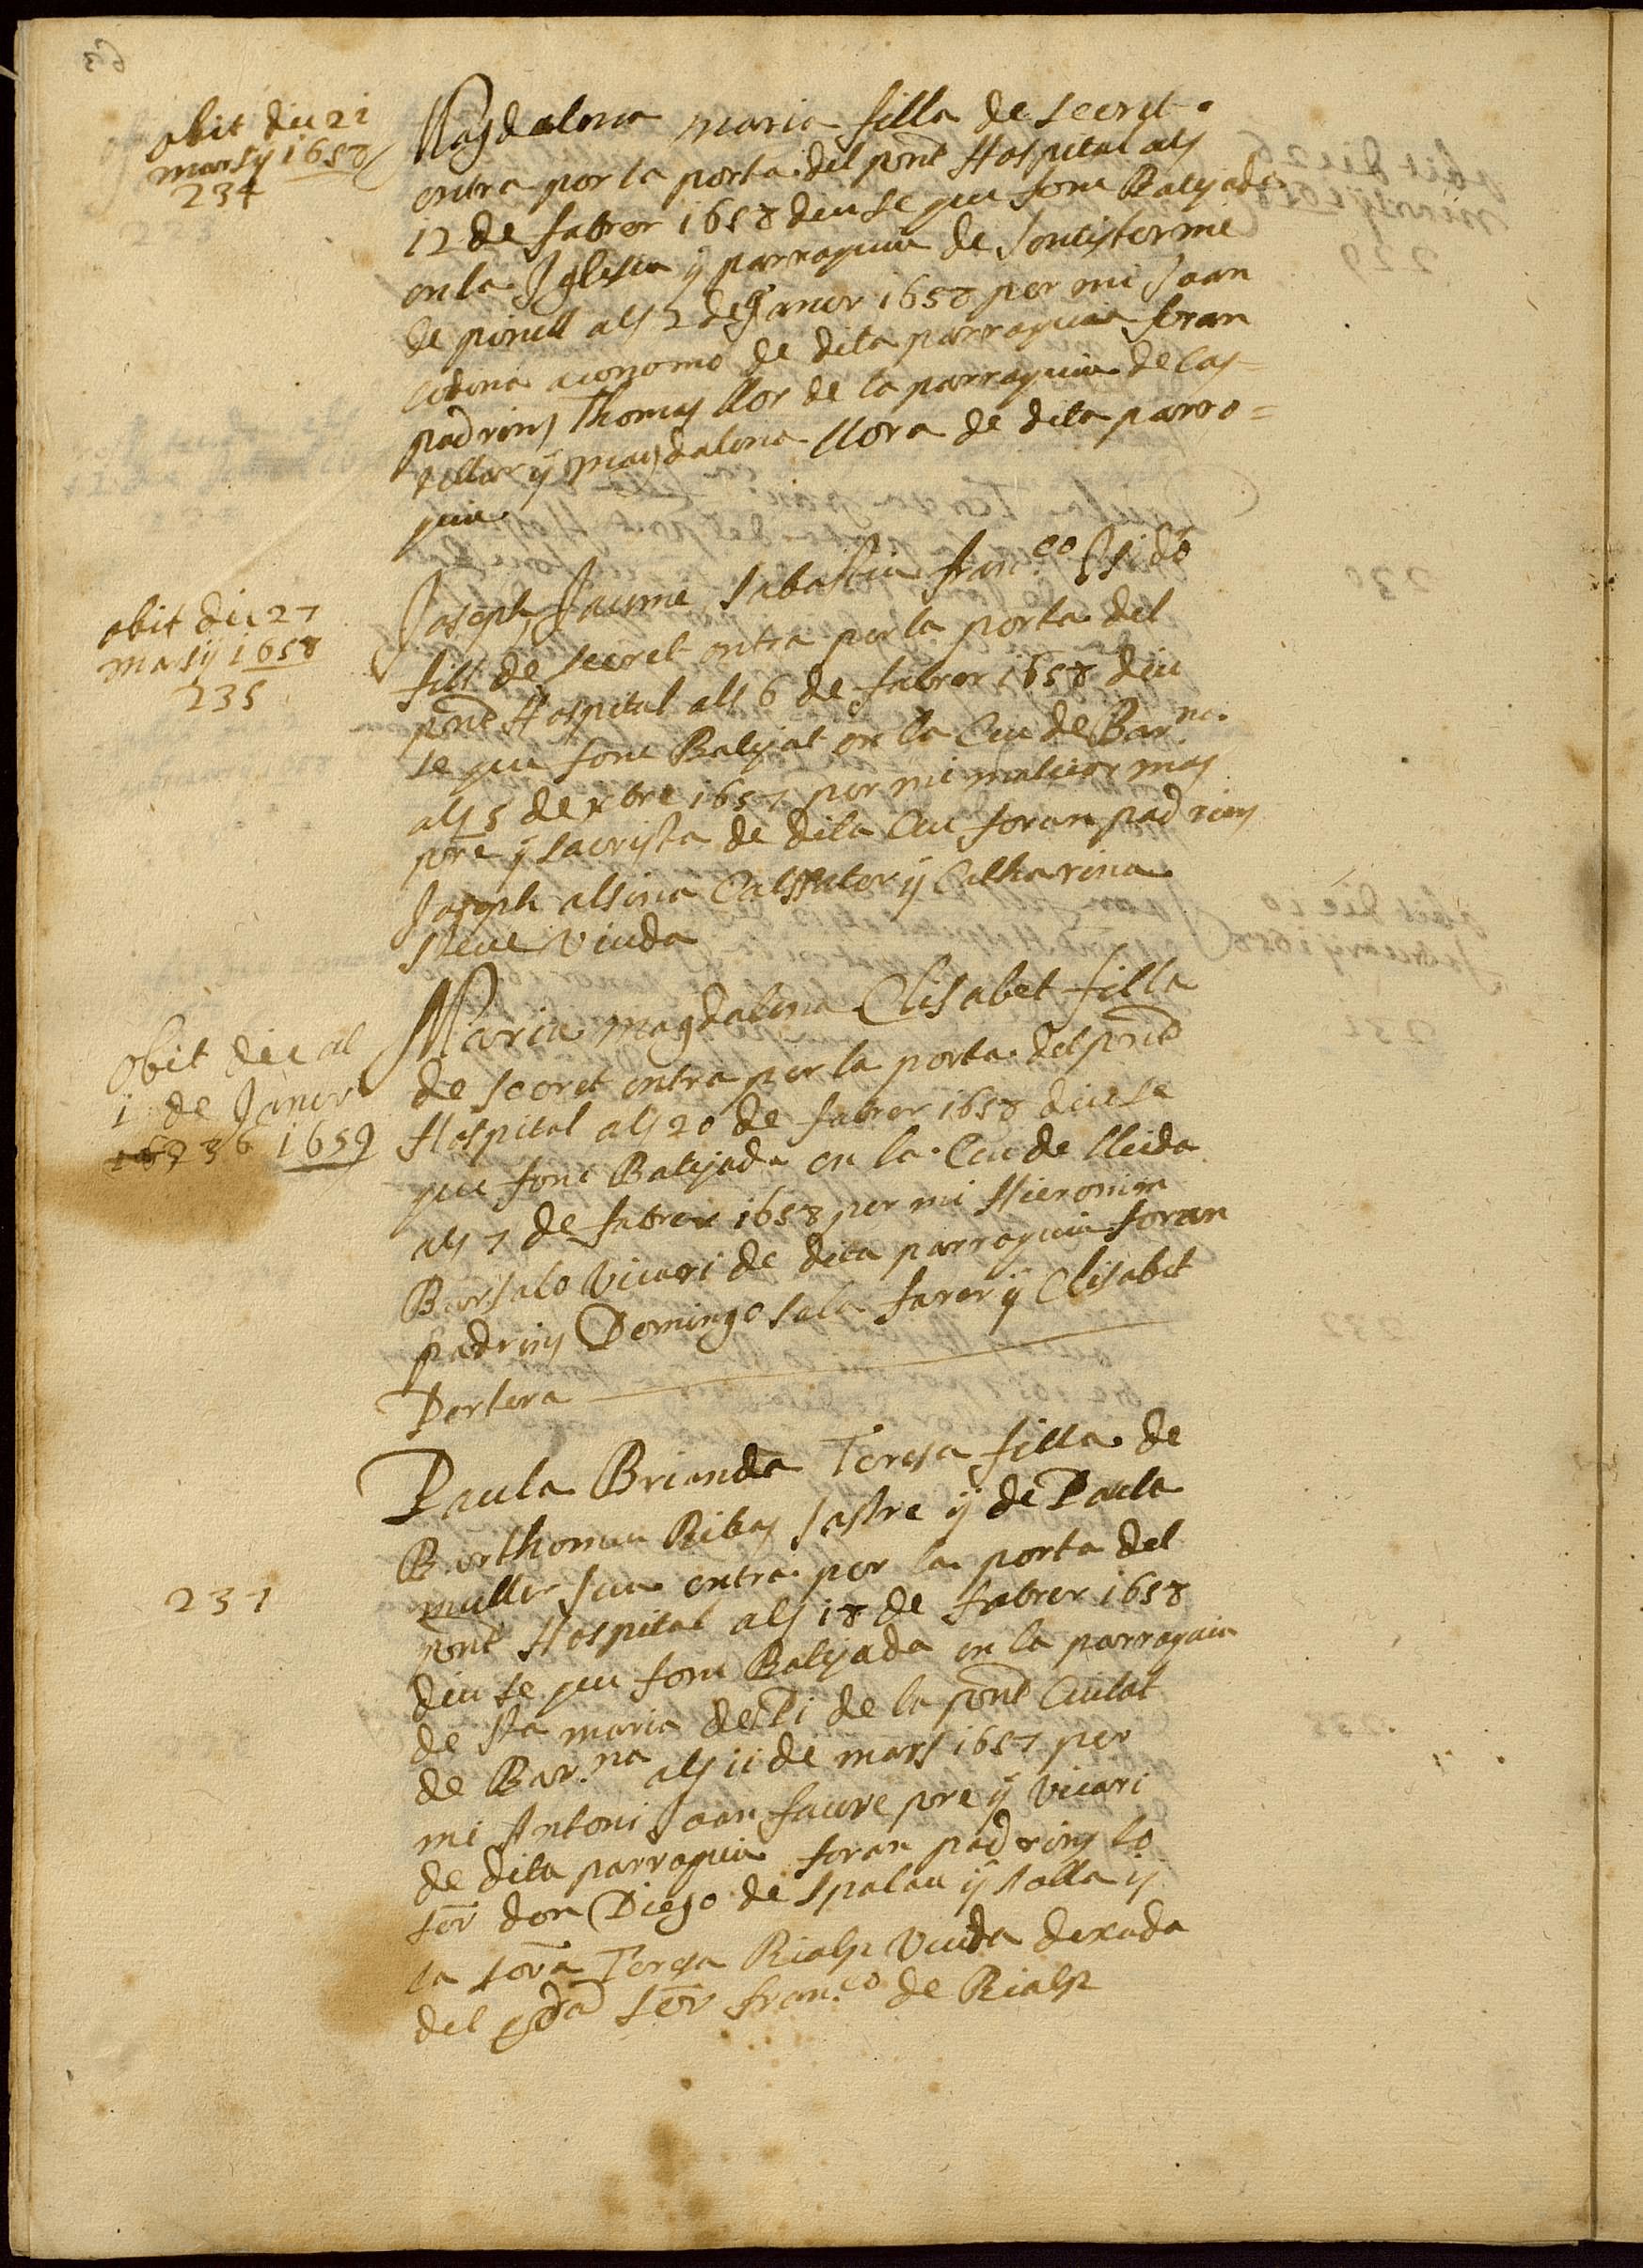 obit die 21
marsij 1658
234
Magdalena maria filla de secret
entra per la porta del pnt Hospital als
12 de fabrer 1658 diu se que fonc Batejada
en la Iglesia y parroquia de
de pinell als 2 de Janer 1658 per mi Joan
codina aconomo de dita parroquia foran
padrins Thomas llor de la parroquia de Cas=
tellar y magdalena llora de dita parro=
quia
obit die 27
marsij 1658
235
Joseph Jaume sabastia fran.co Isidro
fill de secret entra per la porta del
pnt Hospital als 6 de fabrer 1658 diu
se que fonc Batejat en la Ceu de Bar.na
als 5 de xbre 1657 per mi malcior mas
pre y sacrista de dita Ceu foran padrins
Joseph alsina Calsater y Catharina
steve viuda
obit die al
1 de Janer
236 1659
Maria magdalena Elisabet filla
de secret entra per la porta del pnt
Hospital als 20 de fabrer 1658 diu se
que fonc Batejada en la Ceu de lleida
als 7 de fabrer 1658 per mi Hieronim
Barsalo vicari de dita parroquia foran
padrins Domingo sala farer y Elisabet
Portera
237
Paula Brianda Teresa filla de
Barthomeu Ribas sastre y de Paula
muller sua entra per la porta del
pnt Hospital als 18 de fabrer 1658
diu se que fonc Batejada en la parroquia
de sta maria del Pi de la pnt Ciutat
de Bar.na als 11 de mars 1657 per
mi Antoni Joan faure pre y vicari
de dita parroquia foran padrins lo
sor don Diego de spalau y y
la sora Teresa Rialp viuda dexada
del qo sor fran.co de Rialp